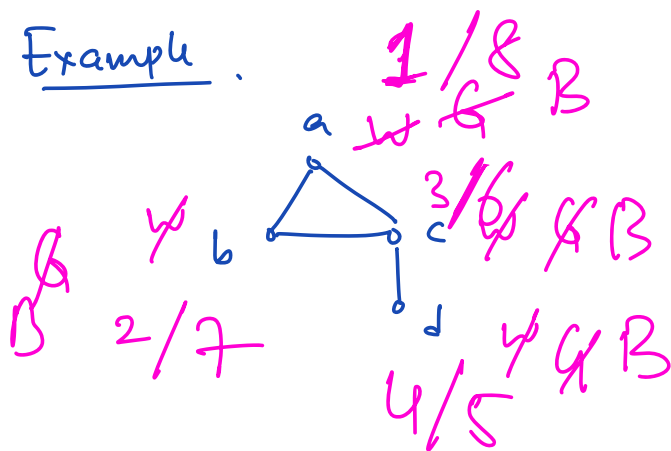 Example.
1/8
a W G B
3/6
b W c W G B
G
B 2/7
d W G B
4/5